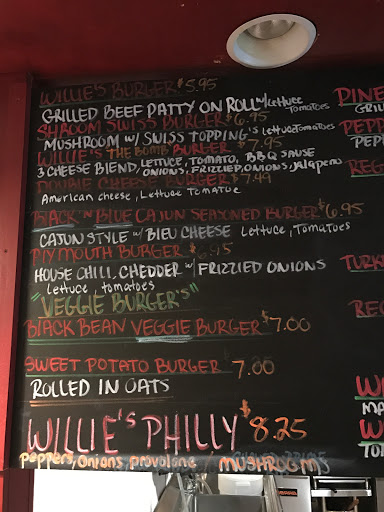 WILLIE'S BURGER $5.95
GRILLED BEEF PATTY ON ROLL w/ Lettuce Tomatoes
SHROOM SWISS BURGER $6.95
MUSHROOM w/ SWISS TOPPING'S Lettuce Tomatoes
WILLIE'S THE BOMB BURGER $7.95
3 CHEESE BLEND, LETTUCE, TOMATO, BBQ SAUSE
ONIONS, FRIZZIED, ONIONS, Jalapeno
DOUBLE CHEESE BURGER $7.99
American cheese, Lettuce Tomatoe
BLACK'N BLUE CAJUN SEASONED BURGER $6.95
CAJUN STYLE w/ BLEU CHEESE Lettuce, Tomatoes
PLYMOUTH BURGER $6.95
HOUSE CHILI, CHEDDER w/ FRIZZIED ONIONS
lettuce, tomatoes
"VEGGIE BURGER'S"
BLACK BEAN VEGGIE BURGER $7.00
SWEET POTATO BURGER 7.00
ROLLED IN OATS
WILLIE'S PHILLY $8.25
peppers, onions, provolone / MUSHROOMS
DINE
GRIL
PEPP
PEPP
REG
TURK
REG
W
MA
W
TO